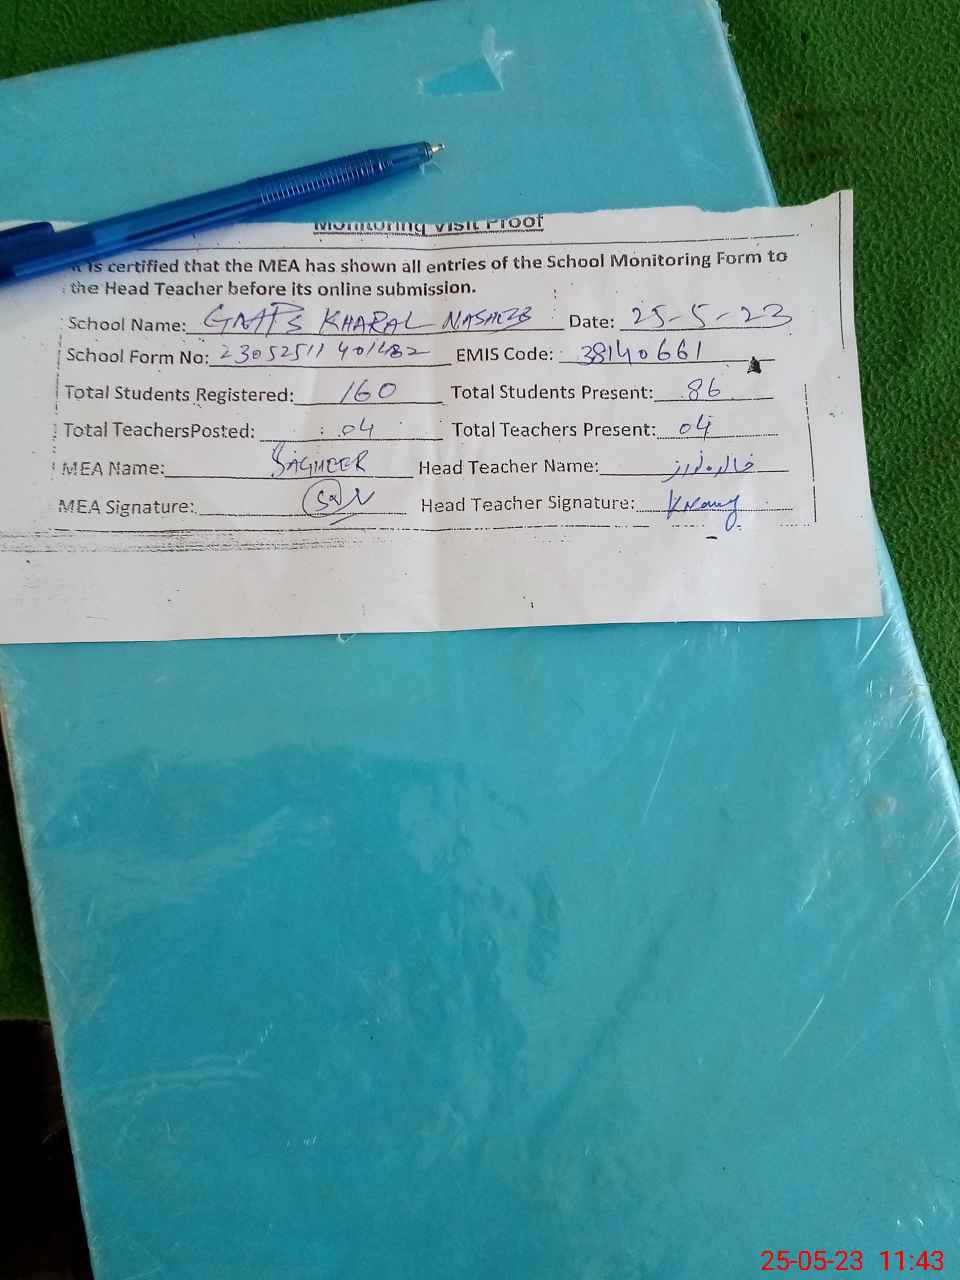 Monitoring Visit Proof
It is certified that the MEA has shown all entries of the School Monitoring Form to
the Head Teacher before its online submission.
School Name: GMMPS KHARAL NASHEEB Date: 25-5-23
School Form No: 23052511401482 EMIS Code: 38140661
Total Students Registered: 160 Total Students Present: 86
Total TeachersPosted: 04 Total Teachers Present: 04
MEA Name: SAGHEER Head Teacher Name:
MEA Signature: Head Teacher Signature:
25-05-23 11:43